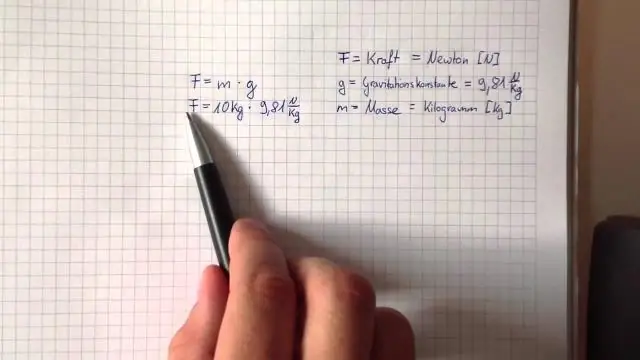 F = m · g
F = 10kg · 9,81 N/kg
F = Kraft = Newton [N]
g = Gravitationskonstante = 9,81 N/kg
m = Masse = Kilogramm [kg]